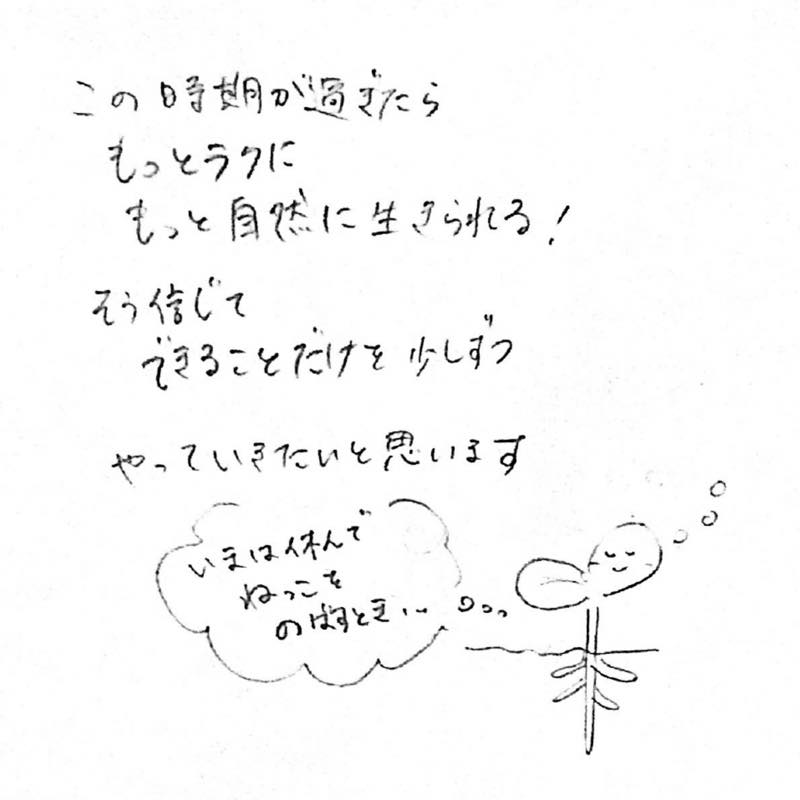 この時期が過ぎたら
もっとラクに
もっと自然に生きられる！
そう信じて
できることだけを少しずつ
やっていきたいと思います
いまは休んで
ねっこを
のばすとき…